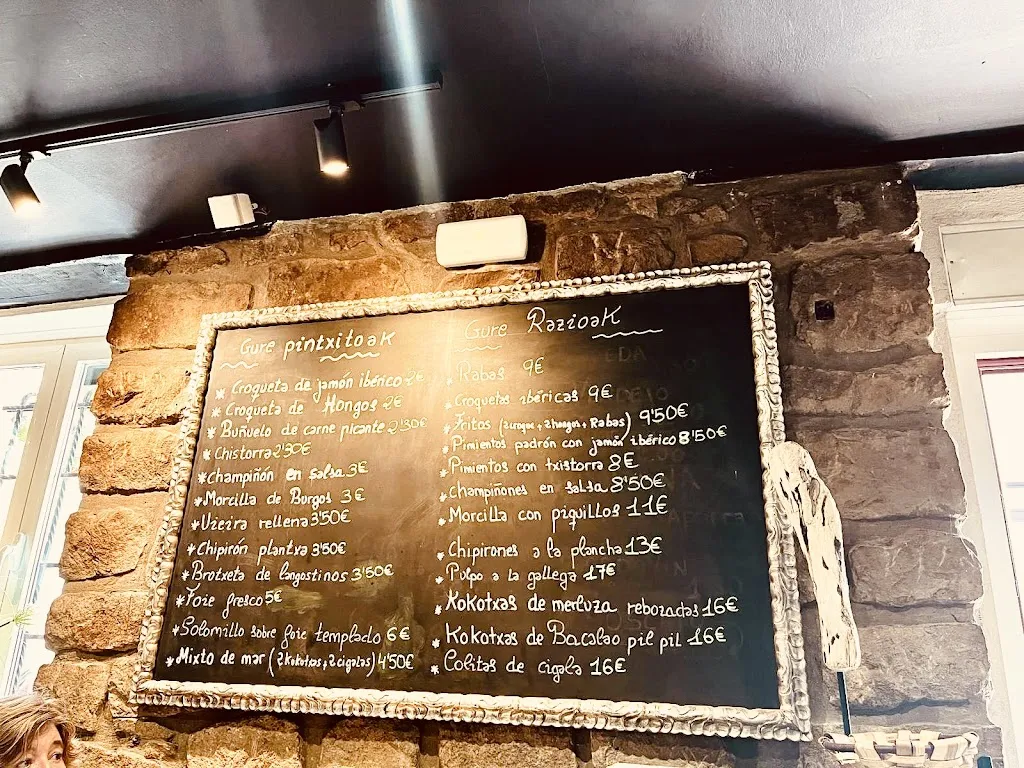 Gure pintxitoak
* Croqueta de jamón ibérico 2€
* Croqueta de Hongos 2€
* Buñuelo de carne picante 2'30€
* Chistorra 2'30€
* Champiñón en salsa 3€
* Morcilla de Burgos 3€
* Vieira rellena 3'50€
* Chipirón plantxa 3'50€
* Brotxeta de langostinos 3'50€
* Foie fresco 5€
* Solomillo sobre foie templado 6€
* Mixto de mar (2 kokotxas + 2 cigalas) 4'50€
Gure Razioak
* Rabas 9€
* Croquetas ibéricas 9€
* Fritos (2 croque + 2 hongos + Rabas) 9'50€
* Pimientos padrón con jamón ibérico 8'50€
* Pimientos con txistorra 8€
* Champiñones en salsa 8'50€
* Morcilla con piquillos 11€
* Chipirones a la plancha 13€
* Pulpo a la gallega 17€
* Kokotxas de merluza rebozadas 16€
* Kokotxas de Bacalao pil pil 16€
* Colitas de cigala 16€